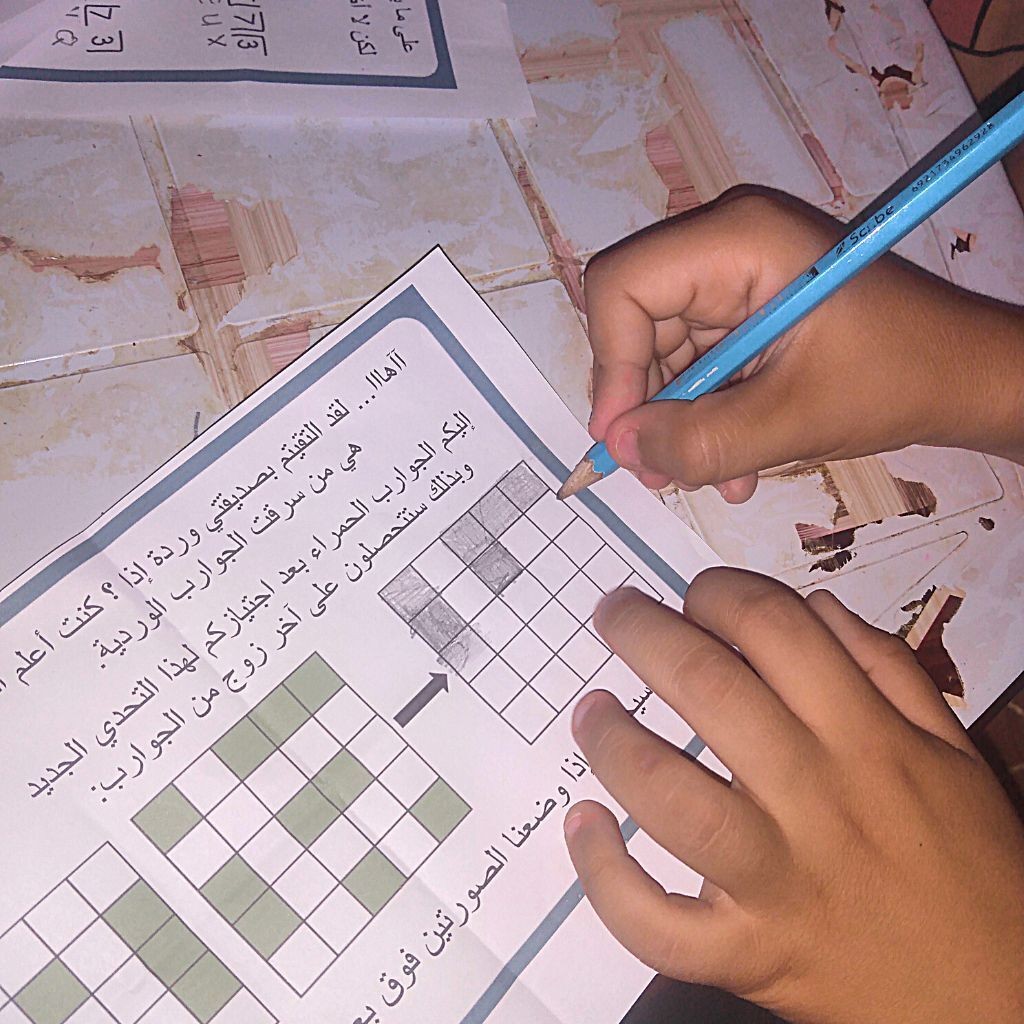 على ما
لكن لا
آآهااا... لقد التقيتم بصديقتي وردة إذا؟ كنت أعلم
هي من سرقت الجوارب الوردية.
إليكم الجوارب الحمراء بعد اجتيازكم لهذا التحدي الجديد
وبذلك ستتحصلون على آخر زوج من الجوارب:
إذا وضعنا الصورتين فوق
Scribe
6921734962928